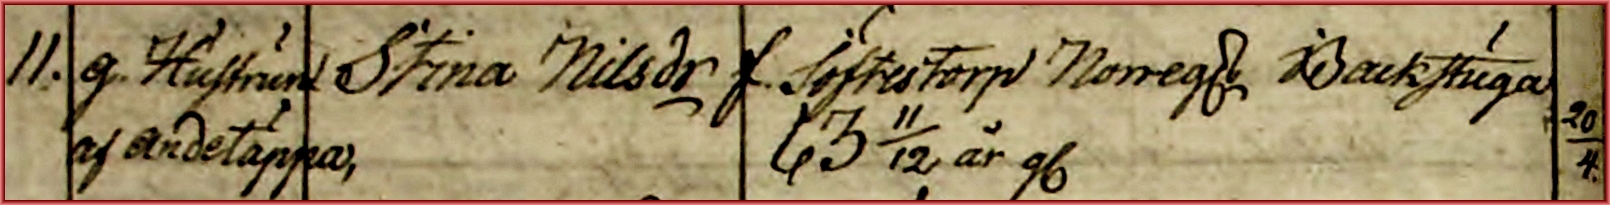 11. g. Hustrun Stina Nilsdr f. Söftestorp Norreg. Backstuga
af andetäppa, 63 11/12 år gl 20/4.